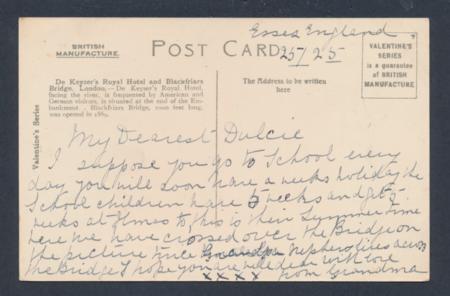 Essex England
25/25
BRITISH
MANUFACTURE.
POST CARD
VALENTINE'S
SERIES
is a guarantee
of BRITISH
MANUFACTURE
De Keyser's Royal Hotel and Blackfriars
Bridge, London.—De Keyser's Royal Hotel,
facing the river, is frequented by American and
German visitors, is situated at the end of the
Embankment. Blackfriars Bridge, feet long,
was opened in 1869.
The Address to be written
here
Valentine's Series
My Dearest Dulcie
I suppose you go to School every
day you will soon have a weeks holiday the
School children have 5 weeks and get 5
weeks at times to this is their Summer time
here we have crossed over the Bridge on
the picture twice Grandpa Nephew lives across
the Bridge I hope you are well dear with love
x x x x from Grandma